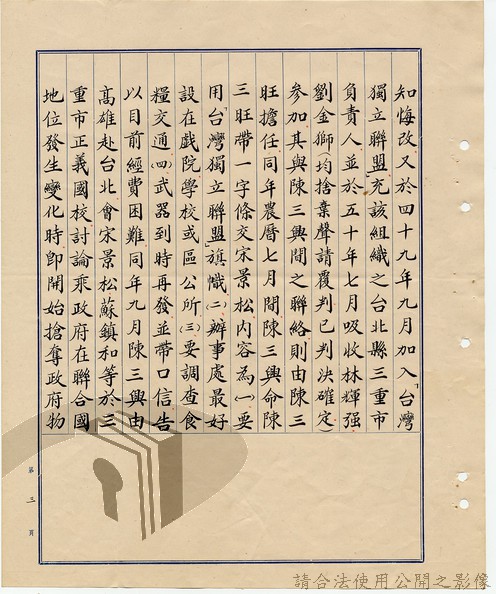 知悔改又於四十九年九月加入「台灣
獨立聯盟」充該組織之台北縣三重市
負責人並於五十年七月吸收林輝强
劉金獅(均捨棄聲請覆判已判決確定)
參加其與陳三興間之聯絡則由陳三
旺擔任同年農曆七月間陳三興命陳
三旺帶一字條交宋景松內容為㈠要
用「台灣獨立聯盟」旗幟㈡辦事處最好
設在戲院學校或區公所㈢要調查食
糧交通㈣武器到時再發並帶口信告
以目前經費困難同年九月陳三興由
高雄赴台北會宋景松蘇鎮和等於三
重市正義國校討論乘政府在聯合國
地位發生變化時卽開始搶奪政府物
第三頁
請合法使用公開之影像